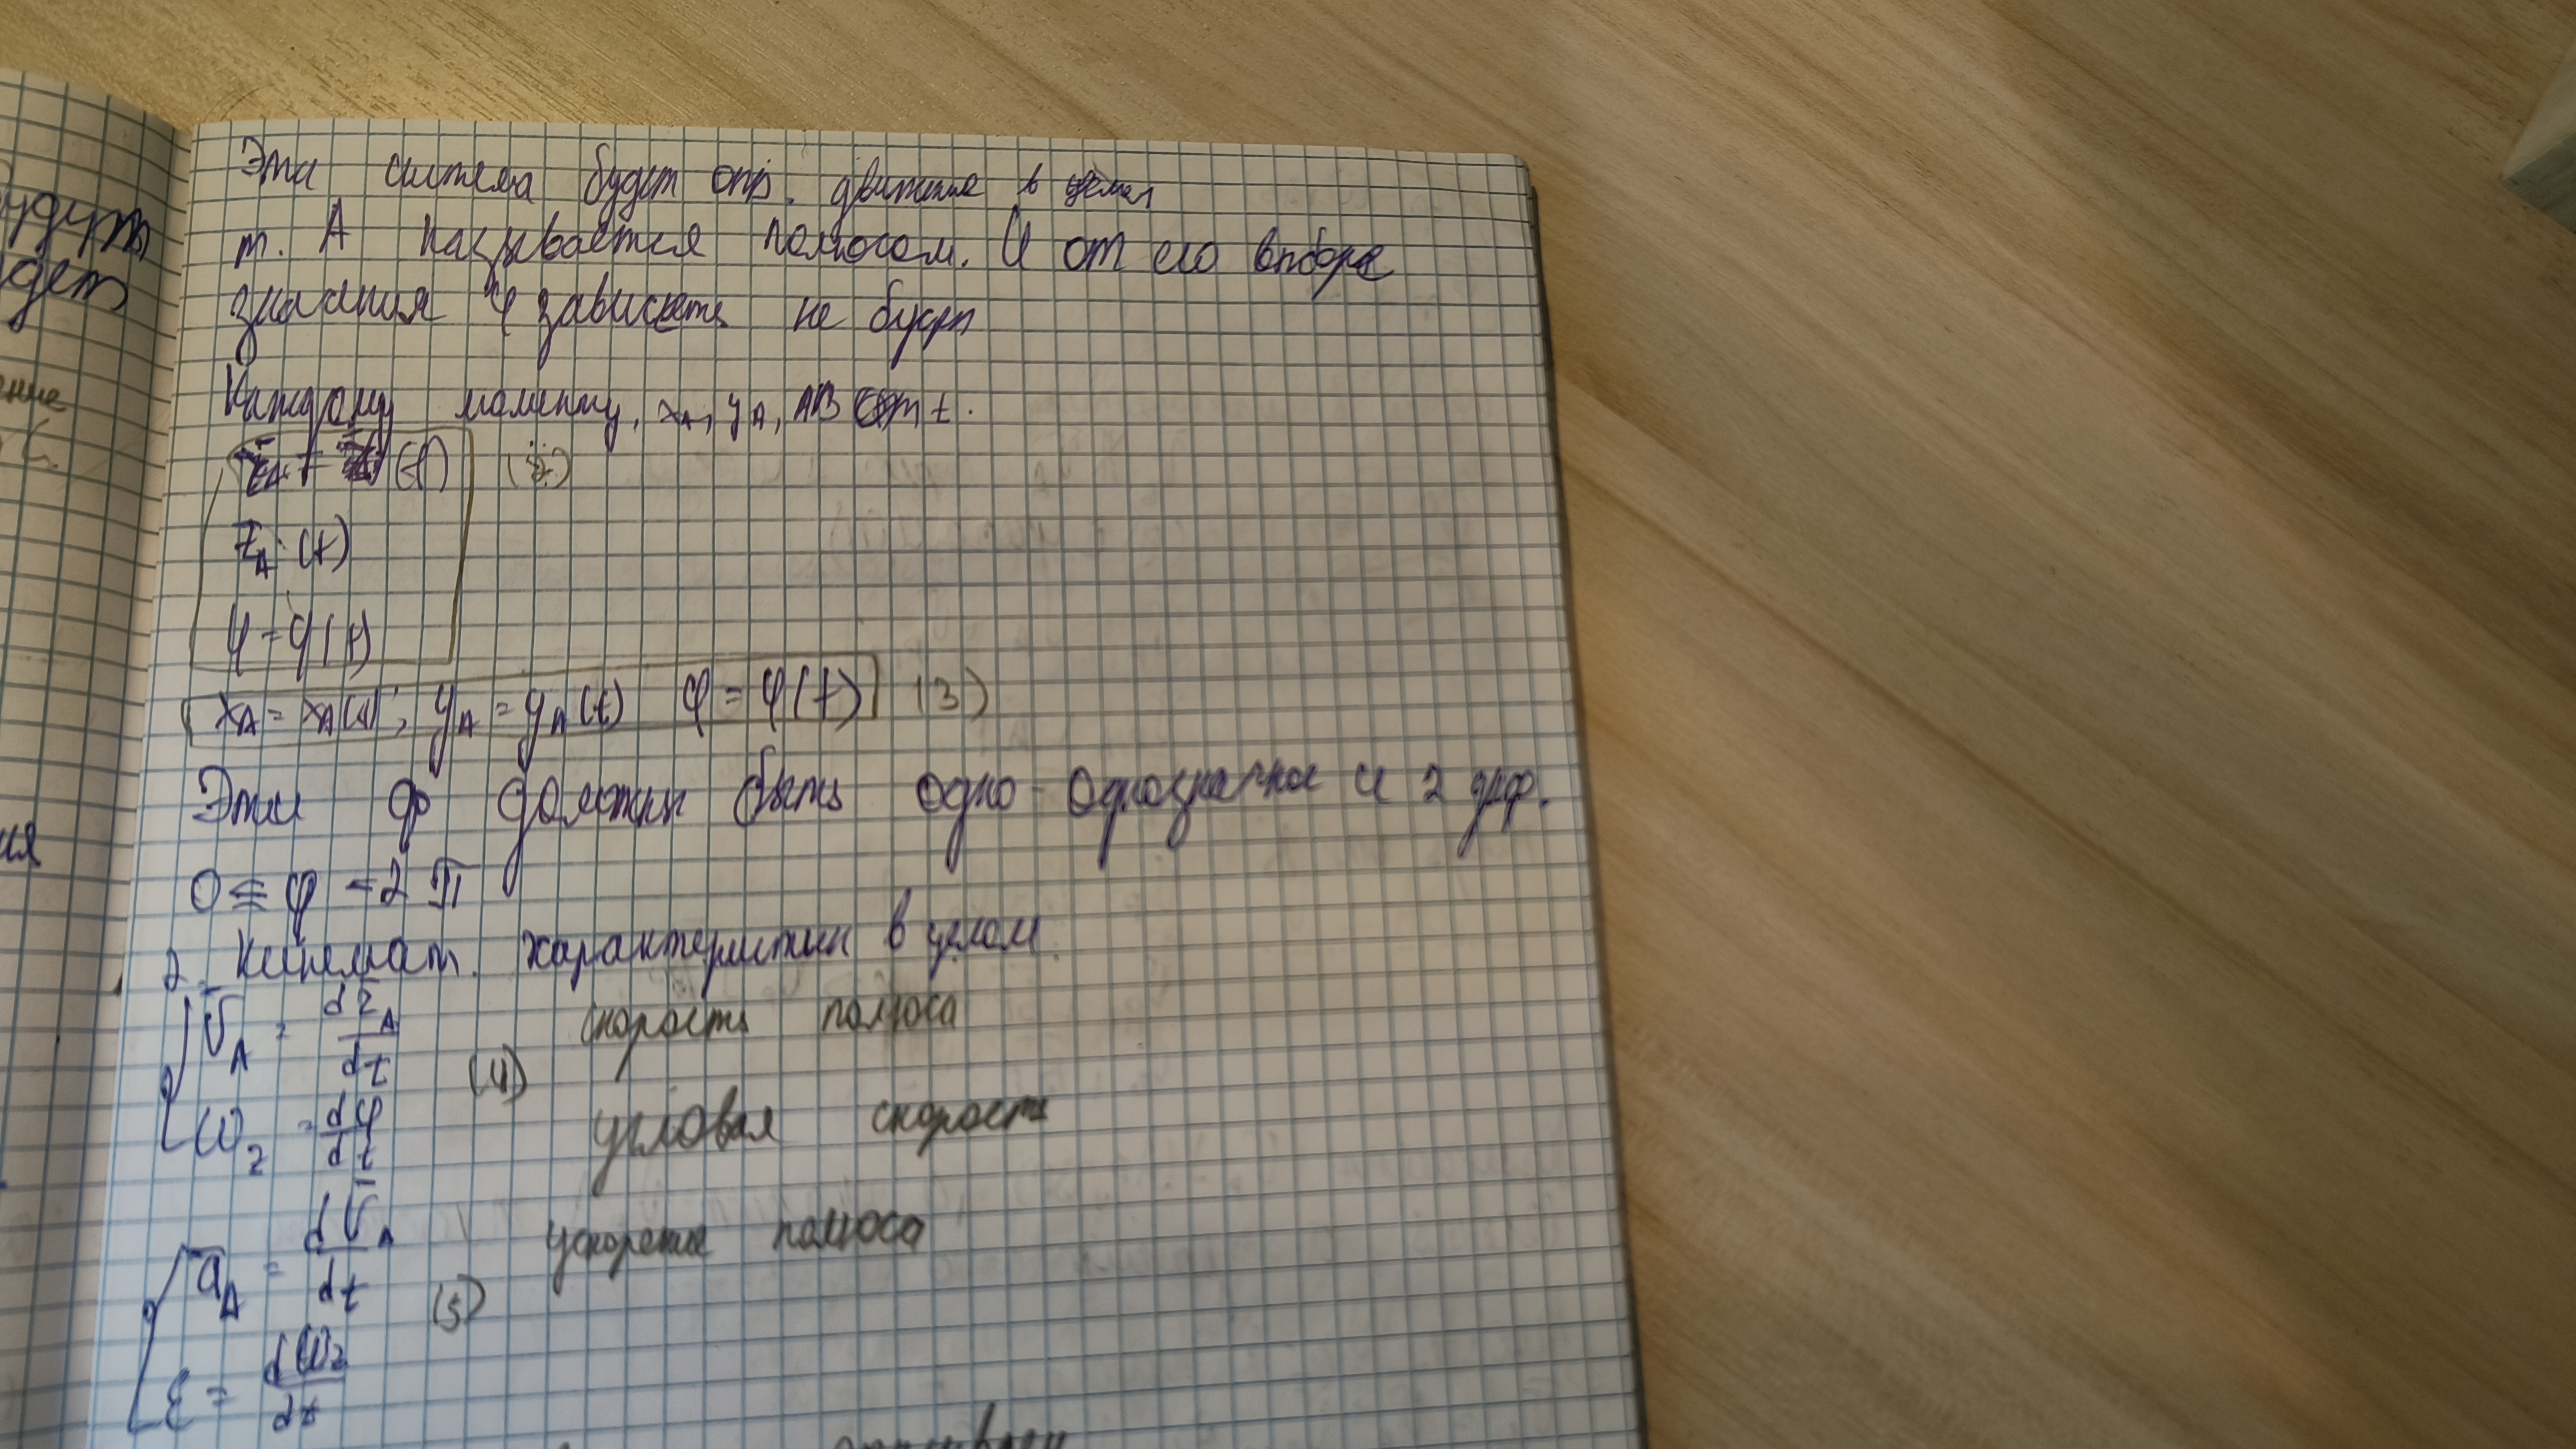 Эта система будет опр. движение в целом
т. А называется полюсом. И от его выбора
значения φ зависеть не будет
Каждому моменту, xA, yA, AB от t.
r̄A = (t) (2)
r̄A (t)
φ = φ(t)
xA = xA(t); yA = yA(t) φ = φ(t) (3)
Эти ф должны быть одно-однозначны и 2 диф.
0 ≤ φ ≤ 2π
2. Кинемат. характеристик в целом.
V̄A = dr̄A/dt скорость полюса
(4)
ωz = dφ/dt угловая скорость
āA = dV̄A/dt ускорение полюса
(5)
ε = dωz/dt
удут
дет
ение
ия